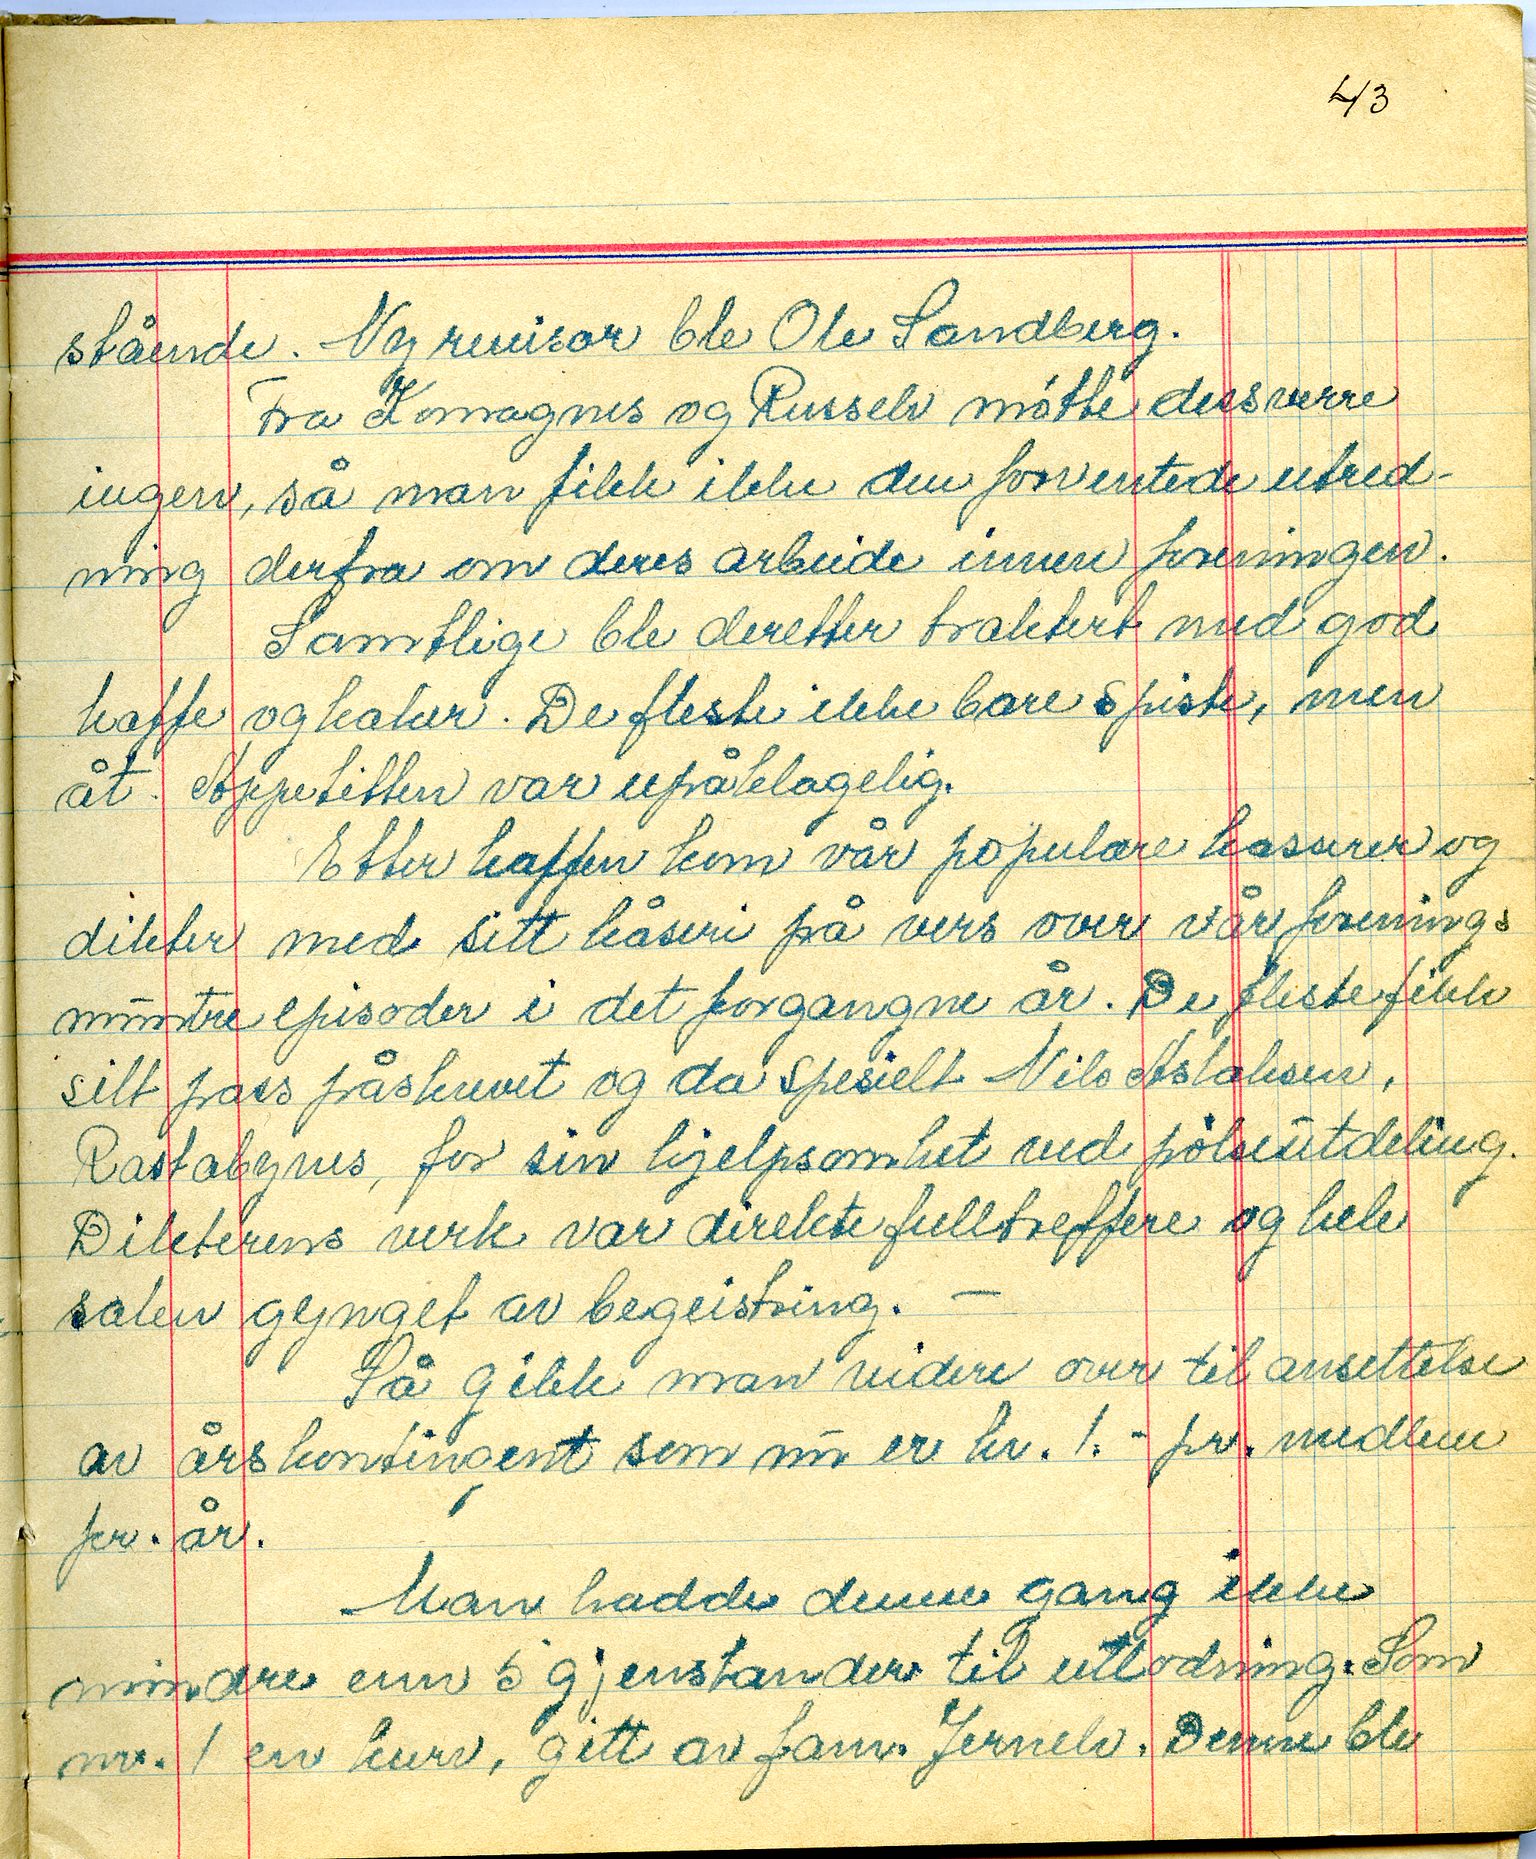 43
stående. Ny revisor ble Ole Sandberg.
Fra Komagnes og Russelv møtte dessverre
ingen, så man fikk ikke den forventede utred-
ning derfra om deres arbeide innen foreningen.
Samtlige ble deretter traktert med god
kaffe og kaker. De fleste ikke bare spiste, men
åt. Appetitten var upåklagelig.
Etter kaffen kom vår populære kasserer og
dikter med sitt kåseri på vers over vår forenings
muntre episoder i det forgangne år. De fleste fikk
sitt pass påskrevet og da spesielt Nils Aslaksen,
Rastabynes, for sin hjelpsomhet ved pølseutdeling.
Dikterens verk var direkte fulltreffere og hele
salen gynget av begeistring. —
Så gikk man videre over til ansettelse
av årskontingent som nu er kr. 1.- pr. medlem
pr. år.
Man hadde denne gang ikke
mindre enn 5 gjenstander til utlodning. Som
nr. 1 en kurv, gitt av fam. Jernelv. Denne ble